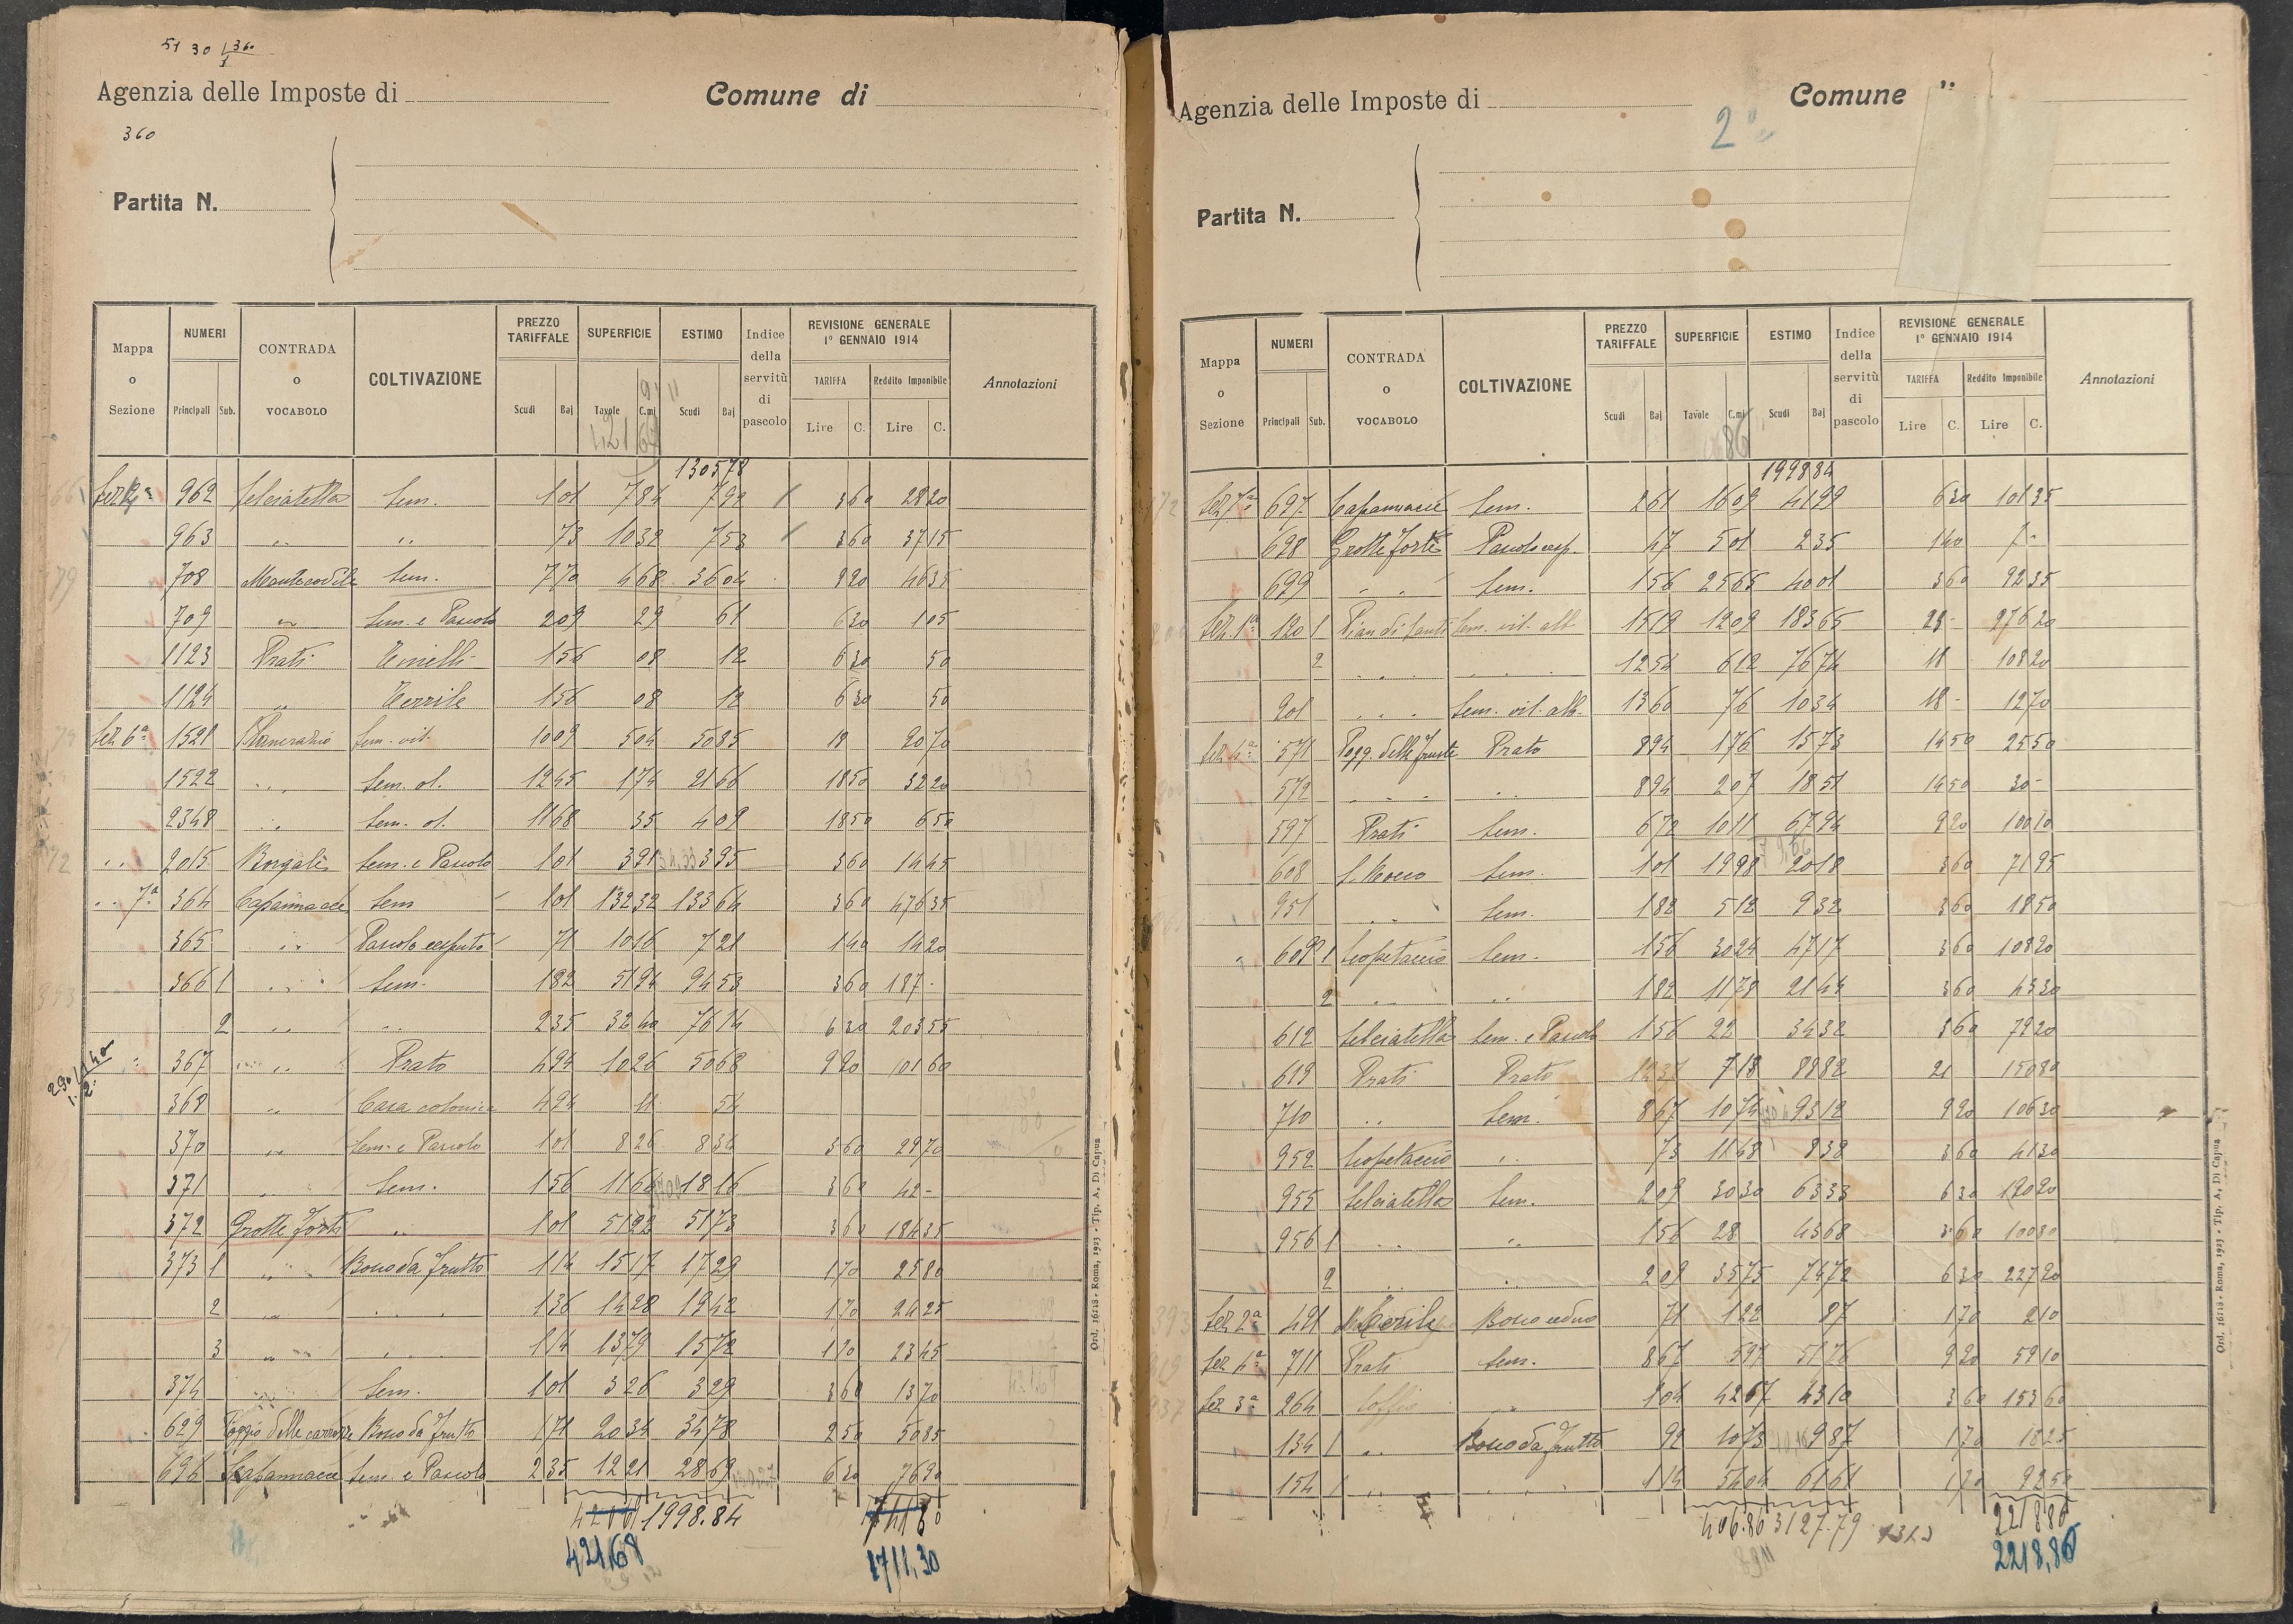 51 30 | 360
1
Agenzia delle Imposte di
Comune di
360
Partita N.
Mappa o Sezione NUMERI Principali Sub. CONTRADA o VOCABOLO COLTIVAZIONE PREZZO TARIFFALE Scudi Baj SUPERFICIE Tavole C.mi ESTIMO Scudi Baj Indice della servitù di pascolo REVISIONE GENERALE 1° GENNAIO 1914 TARIFFA Lire C. Reddito Imponibile Lire C. Annotazioni
421 68
130578
962 Selciatella Sem. 1 01 7 84 7 92 3 60 28 20
963 " " 73 10 32 7 53 3 60 37 15
708 Sem. 7 70 4 68 36 04 9 20 46 35
709 " Sem. e Pascolo 2 09 29 61 6 30 1 05
1123 Prati 1 56 08 12 6 30 50
1124 " 1 56 08 12 6 30 50
Sez 6ª 1521 Sem. vit. 10 09 5 04 50 85 18 90 70
1522 " Sem. ol. 12 45 1 74 21 66 18 50 32 20
2348 " Sem. ol. 11 68 35 4 09 18 50 6 50
" 2015 Sem. e Pascolo 1 01 3 91 3 95 3 60 14 45
" 7ª 364 Capannacce Sem 1 01 132 32 133 64 3 60 476 35
365 " Pascolo cesputo 71 10 16 7 21 1 40 14 20
366 1 " Sem. 1 82 51 94 94 53 3 60 187 -
2 " " 2 35 32 40 76 14 6 30 203 55
290 / 1.40
1. 2:
367 " Prato 4 94 10 26 50 68 9 20 101 60
368 " Casa colonica 4 94 11 54
370 " Sem. e Pascolo 1 01 8 26 8 34 3 60 29 70
371 " Sem. 1 56 11 64 18 16 3 60 42 -
372 Grotte Forti " 1 01 51 22 51 73 3 60 184 35
373 1 " Bosco da frutto 1 14 15 17 17 29 1 70 25 80
2 " " 1 36 14 28 19 42 1 70 24 25
3 " " 1 14 13 79 15 72 1 70 23 45
374 " Sem. 1 01 3 26 3 29 3 60 13 70
629 Poggio delle carrozze Bosco da frutto 1 71 20 34 34 78 2 50 50 85
696 Capannacce Sem. e Pascolo 2 35 12 21 28 69 6 30 76 90
1998.84
421,68 1711,30
Ord. 16118 - Roma, 1923 - Tip. A. Di Capua
Agenzia delle Imposte di
Comune "
2°
Partita N.
Mappa o Sezione NUMERI Principali Sub. CONTRADA o VOCABOLO COLTIVAZIONE PREZZO TARIFFALE Scudi Baj SUPERFICIE Tavole C.mi ESTIMO Scudi Baj Indice della servitù di pascolo REVISIONE GENERALE 1° GENNAIO 1914 TARIFFA Lire C. Reddito Imponibile Lire C. Annotazioni
199884
Sez 7ª 697 Capannacce Sem. 2 61 16 09 41 99 6 30 101 35
698 Grotte Forti Pascolo cesp. 47 5 01 2 35 1 40 7 -
699 " " Sem. 1 56 25 65 40 01 3 60 92 35
Sez. 1ª 120 1 Pian di Santi Sem. vit. alb 15 19 12 09 183 65 23 - 276 20
2 " " 12 54 6 12 76 74 18 108 20
201 " " Sem. vit. alb. 13 60 76 10 34 18 - 12 70
Sez 4ª 571 Pogg. delle Fruste Prato 8 94 1 76 15 73 14 50 25 50
572 " " 8 94 2 07 18 51 14 50 30 -
597 Prati Sem. 6 72 10 11 67 94 9 20 100 10
608 S. Rocco Sem. 1 01 19 98 20 18 3 60 71 95
951 " Sem. 1 82 5 12 9 32 3 60 18 50
609 1 Scopetaccio Sem. 1 56 30 24 47 17 3 60 108 20
2 " " 1 82 11 78 21 44 3 60 43 30
612 Selciatella Sem. e Pascolo 1 56 22 34 32 3 60 79 20
619 Prati Prato 12 37 7 18 88 82 21 150 80
710 " Sem. 8 67 10 74 93 12 9 20 106 30
952 Scopetaccio " 73 11 48 8 38 3 60 41 30
955 Selciatella Sem. 2 09 30 30 63 33 6 30 190 20
956 1 " " 1 56 28 43 68 3 60 100 80
2 " " 2 09 35 75 74 72 6 30 227 20
Sez 2ª 491 Bosco ceduo 71 1 22 87 1 70 2 10
Sez 4ª 711 Prati Sem. 8 67 5 97 51 76 9 20 59 10
Sez 3ª 264 " 1 04 42 67 43 10 3 60 153 60
134 1 " Bosco da frutto 92 10 73 9 87 1 70 18 25
154 1 " " 1 14 54 04 61 61 1 70 92 50
406.80 3127.79 221886
2218,86
Ord. 16118 - Roma, 1923 - Tip. A. Di Capua